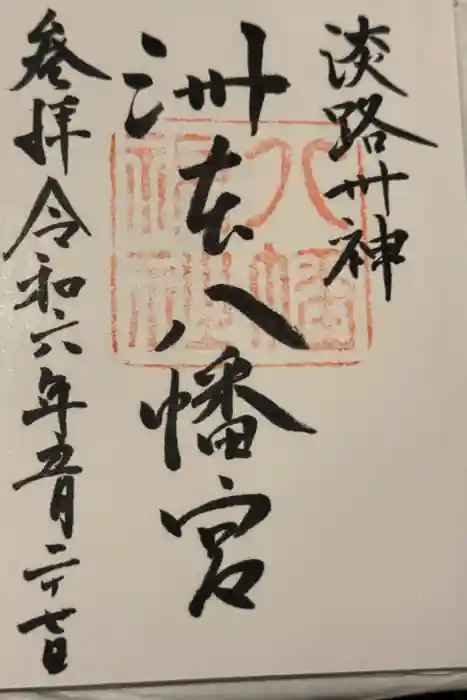 淡路卅神
洲本八幡宮
八幡
神社
参拝 令和六年五月二十七日